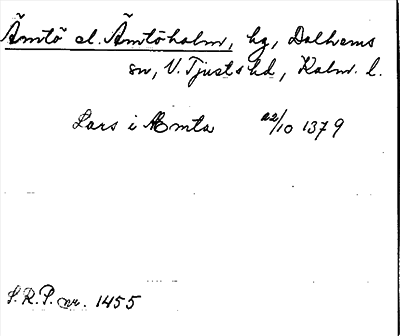 Ämtö el. Ämtöholm, hg, Dalhems
sn, N. Tjusts hd, Kalm. l.
Lars i Æmta 22/10 1379
S.R.P. nr. 1455